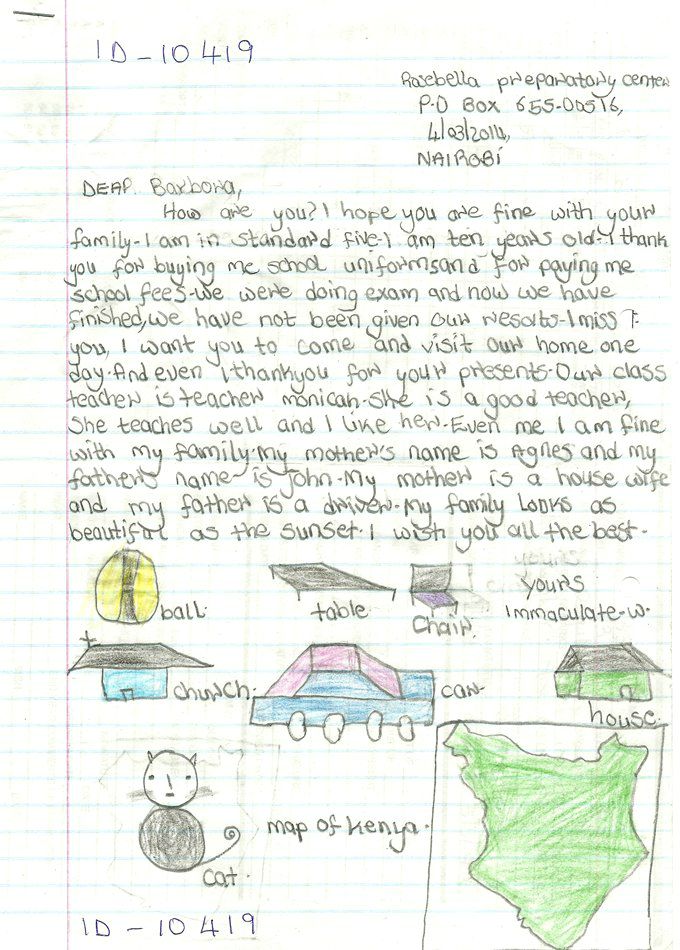 ID - 10419
Rosebella preparatory center
P.O Box 655-00516,
4/03/2014,
NAIROBI
DEAR Barbora,
How are you? I hope you are fine with your
family-I am in standard five-I am ten years old-I thank
you for buying me school uniformsand for paying me
school fees-we were doing exam and now we have
finished,we have not been given our resorts-I miss
you, I want you to come and visit our home one
day.And even I thankyou for your presents-Our class
teacher is teacher monicah-She is a good teacher,
She teaches well and I like her-Even me I am fine
with my family-my mother's name is Agnes and my
father's name is John-My mother is a house wife
and my father is a driver-My family Looks as
beautiful as the sunset-I wish you all the best-
yours
Immaculate-w.
ball.
table
Chair.
church.
car-
house.
cat.
map of kenya.
ID - 10419